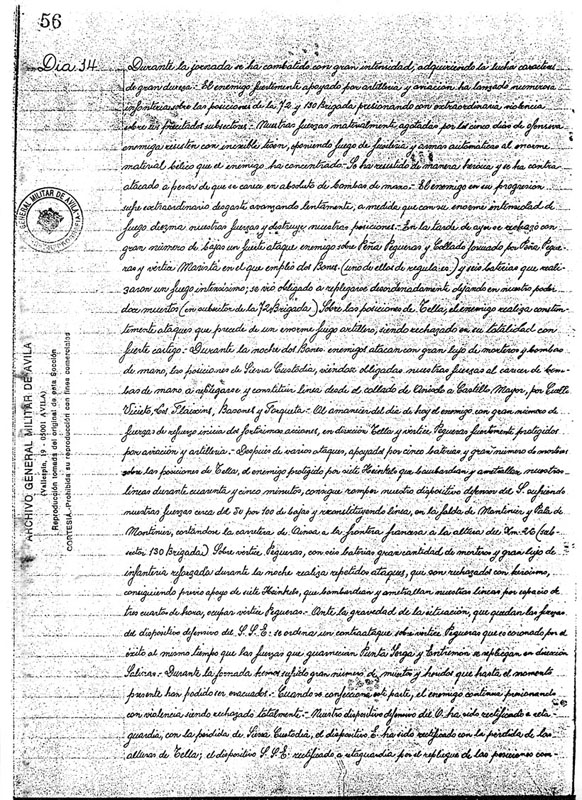 56
Dia 14
Durante la jornada se ha combatido con gran intensidad, adquiriendo la lucha caracteres
de gran dureza.- El enemigo fuertemente apoyado por artilleria y aviacion ha lanzado numerosa
infanteria sobre las posiciones de la 72 y 130 Brigada presionando con extraordinaria violencia
sobre los precitados subsectores.- Nuestras fuerzas materialmente agotadas por los cinco dias de ofensiva
enemiga resisten con increible teson, oponiendo fuego de fusileria y armas automáticas al enorme
material bélico que el enemigo ha concentrado.- Se ha resistido de manera heróica y se ha contra
atacado a pesar de que se carece en absoluto de bombas de mano.- El enemigo en su progresión
sufre extraordinario desgaste avanzando lentamente, a medida que con su enorme intensidad de
fuego diezma nuestras fuerzas y destruye nuestras posiciones.- En la tarde de ayer se rechazó con
gran número de bajas un fuerte ataque enemigo sobre Peña Pigueras y Collado formado por Peña Pigue-
ras y vértice Marinia en el que empleó dos Bones. (uno de ellos de regulares) y seis baterias que reali-
zaron un fuego intensísimo; se vió obligado a replegarse desordenadamente dejando en nuestro poder
doce muertos (en subsector de la 72 Brigada) Sobre las posiciones de Tella, el enemigo realiza constan-
temente ataques que precede de un enorme fuego artillero, siendo rechazado en su totalidad con
fuerte castigo.- Durante la noche dos Bones. enemigos atacan con gran lujo de morteros y bombas
de mano, las posiciones de Sierra Custodia, viéndose obligadas nuestras fuerzas al carecer de bom-
bas de mano a replegarse y constituir linea desde el collado de Anisclo a Castillo Mayor, por Cuello
Viceto, Los Plaixins, Basones y Foqueta.- Al amanecer del dia de hoy el enemigo con gran número de
fuerzas de refresco inicia dos fortisimas acciones, en dirección Tella y vértice Pigueras fuertemente protegidos
por aviación y artilleria.- Después de varios ataques, apoyados por cinco baterias y gran número de morteros
sobre las posiciones de Tella, el enemigo protegido por siete Heinkels que bombardean y ametrallan nuestras
lineas durante cuarenta y cinco minutos, consigue romper nuestro dispositivo defensivo del S. sufriendo
nuestras fuerzas cerca del 30 por 100 de bajas y reconstituyendo linea, en la falda de Montinier y Pala de
Montinier, cortándose la carretera de Ainsa a la frontera francesa á la altura del Km. 26 (sub-
sector 130 Brigada.) Sobre vértice Pigueras, con seis baterias gran cantidad de morteros y gran lujo de
infanteria reforzada durante la noche realiza repetidos ataques, que son rechazados con heroismo,
consiguiendo previo apoyo de siete Heinkels, que bombardean y ametrallan nuestras lineas por espacio de
tres cuartos de hora, ocupar vértice Pigueras.- Ante la gravedad de la situación, que quedan las fuerzas
del dispositivo defensivo del S.S.E. se ordena un contraataque sobre vértice Pigueras que es coronado por el
éxito al mismo tiempo que las fuerzas que guarnecian Punta Forga y Entremón se repliegan en dirección
Salinas.- Durante la jornada hemos sufrido gran número de muertos y heridos que hasta el momento
presente han podido ser evacuados.- Cuando se confecciona este parte, el enemigo continúa presionando
con violencia siendo rechazado totalmente.- Nuestro dispositivo defensivo del O. ha sido rectificado a reta-
guardia, con la pérdida de Sierra Custodia, el dispositivo E. ha sido rectificado con la pérdida de las
alturas de Tella; el dispositivo S.S.E. rectificado a retaguardia por el repliegue de las posiciones com-
GENERAL MILITAR DE AVILA
ARCHIVO GENERAL MILITAR DE AVILA
(Vallespín, 19 - 05001 AVILA)
Reproducción tomada del original de esta Sección
CORTESIA.-Prohibida su reproducción con fines comerciales